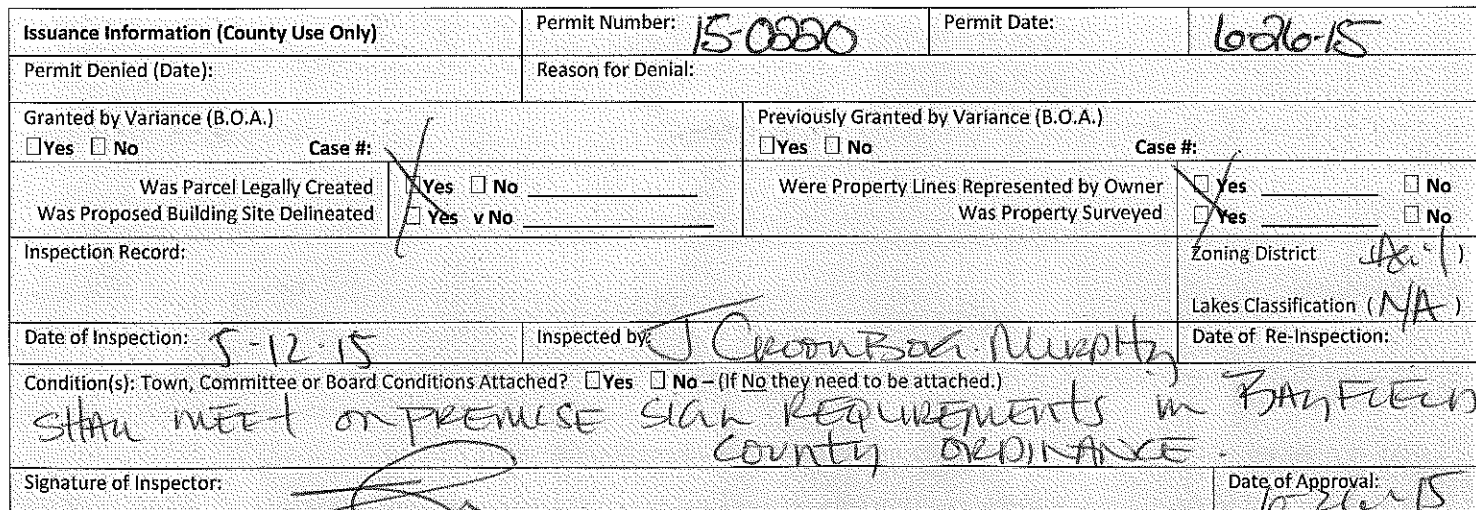 Issuance Information (County Use Only) Permit Number: 15-0220 Permit Date: 6-26-15
Permit Denied (Date): Reason for Denial:
Granted by Variance (B.O.A.) Previously Granted by Variance (B.O.A.)
☐ Yes ☐ No Case #: ☐ Yes ☐ No Case #:
Was Parcel Legally Created ☐ Yes ☐ No Were Property Lines Represented by Owner ☐ Yes ☐ No
Was Proposed Building Site Delineated ☐ Yes v No Was Property Surveyed ☐ Yes ☐ No
Inspection Record: Zoning District )
Lakes Classification ( N/A )
Date of Inspection: 5-12-15 Inspected by: J CroonBorg-Murphy Date of Re-Inspection:
Condition(s): Town, Committee or Board Conditions Attached? ☐ Yes ☐ No – (If No they need to be attached.)
SHALL MEET ON PREMISE SIGN REQUIREMENTS IN BAYFIELD
COUNTY ORDINANCE.
Signature of Inspector: Date of Approval: